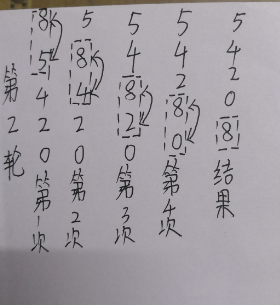 第2轮
85420第1次
58420第2次
54820第3次
54280第4次
54208结果